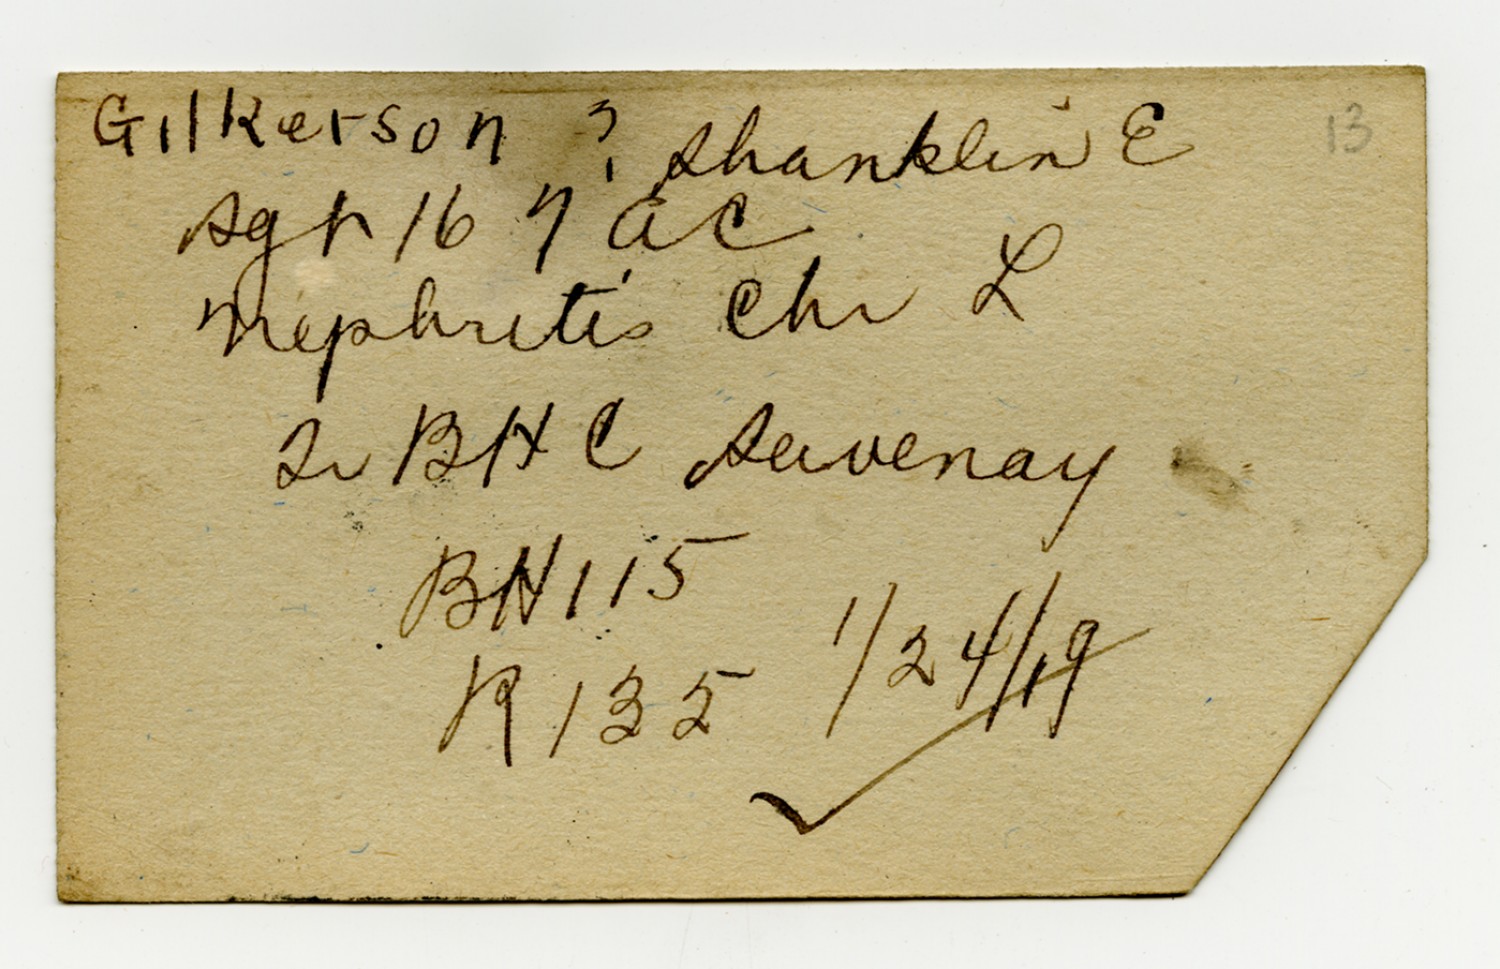 Gilkerson ?, Shanklin E 13
Sgt 167 A C
Nephritis Chr L
Tr BHC Savenay
BH 115
R 135 1/24/19